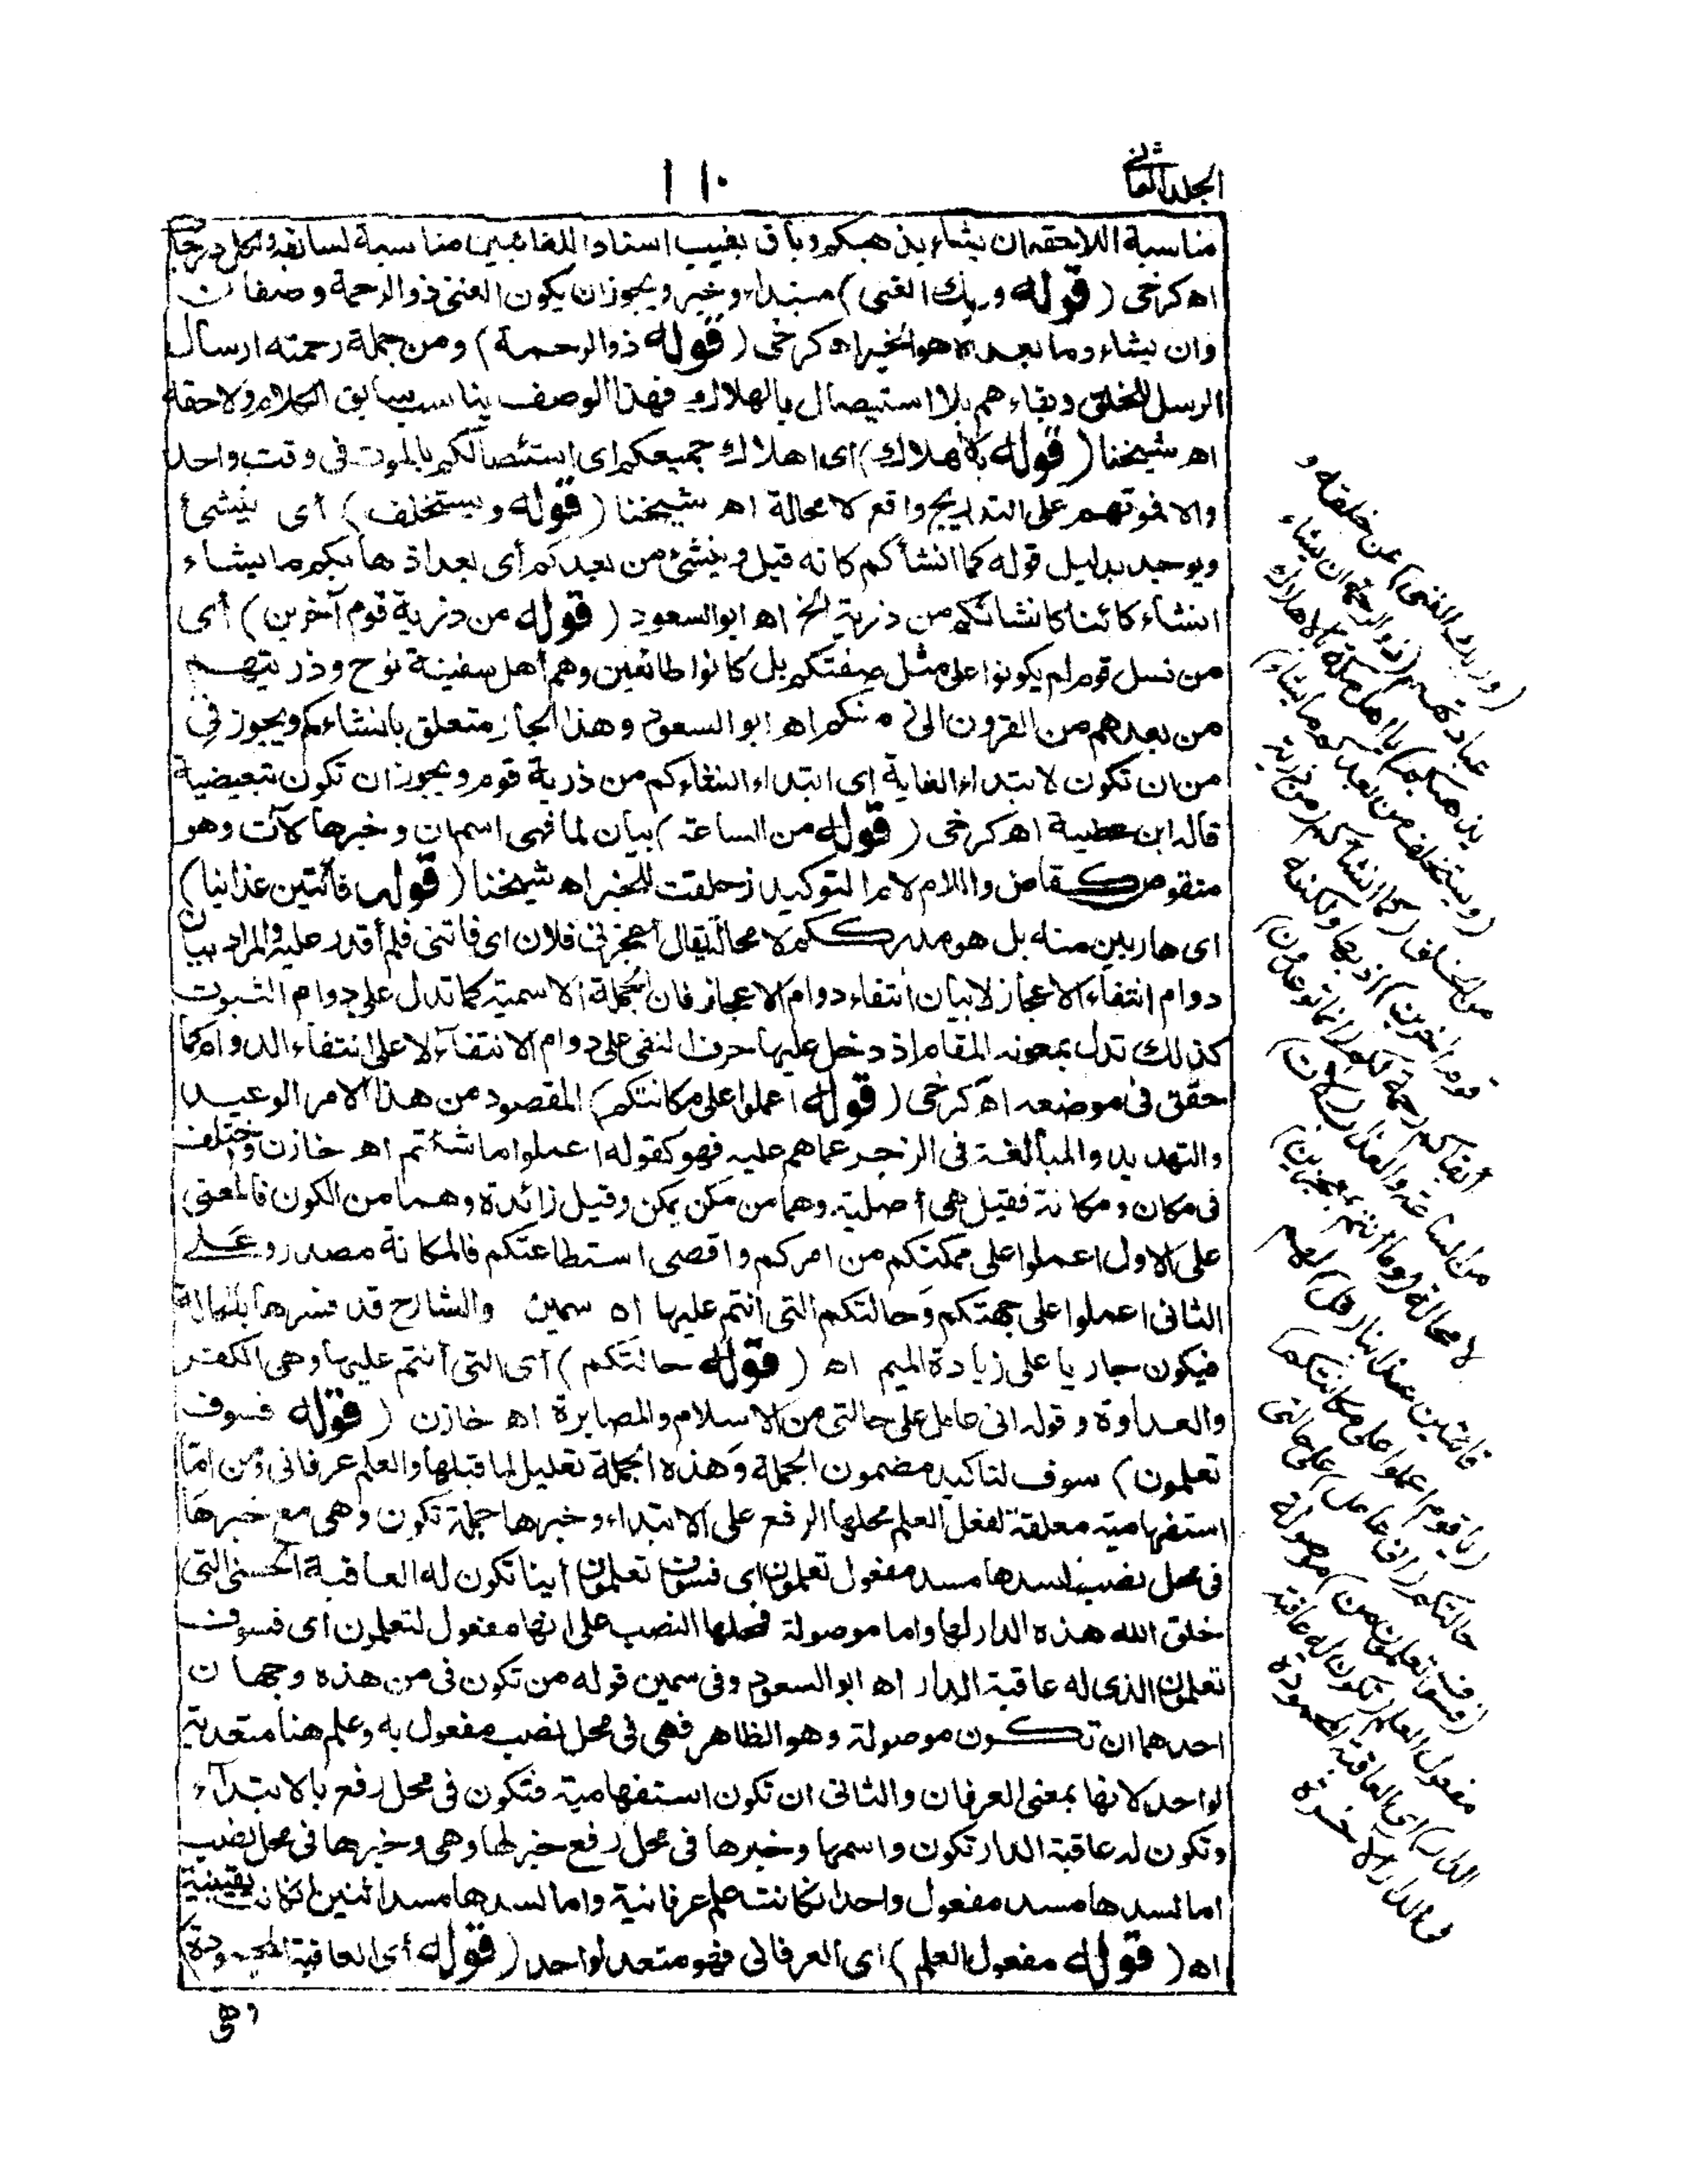 الجلد الثانى
١١٠
مناسبة اللاحقه ان يشاء يذهبكم وباق بغيب اسناد اللغائبين مناسبة لسابقه ولكل درجات
اه كرخى (قوله وربك الغنى) مبتداء وخبر ويجوز ان يكون الغنى ذو الرحمة وصفان
وان يشاء وما بعده هو الخبر اه كرخى (قوله ذو الرحمة) ومن جملة رحمته ارسال
الرسل للخلق وبقاءهم بلا استيصال بالهلاك فهذا الوصف يناسب سابق الكلام ولاحقه
اه شيخنا (قوله بالاهلاك) اى اهلاك جميعكم اى استئصالكم بالموت فى وقت واحد
والا فموتهم على التدريج واقع لا محالة اه شيخنا (قوله ويستخلف) أى ينشئ
ويوجد بدليل قوله كما انشأكم كانه قيل وينشئ من بعدكم أى بعد اذهابكم ما يشاء
انشاء كائنا كانشائكم من ذرية الخ اه ابو السعود (قوله من ذرية قوم آخرين) أى
من نسل قوم لم يكونوا على مثل صفتكم بل كانوا طائعين وهم أهل سفينة نوح وذريتهم
من بعدهم من القرون الى زمنكم اه ابو السعود وهذا الجار متعلق بانشاءكم ويجوز فى
من ان تكون لابتداء الغاية اى ابتداء انشاءكم من ذرية قوم ويجوز ان تكون تبعيضية
قاله ابن عطية اه كرخى (قوله من الساعة) بيان لما فهى اسم ان وخبرها لآت وهو
منقوص كقاض واللام لام التوكيد زحلقت للخبر اه شيخنا (قوله فائتين عذابنا)
اى هاربين منه بل هو مدرككم لا محالة يقال أعجزنى فلان اى فاتنى فلم أقدر عليه والمراد بيان
دوام انتفاء الاعجاز لا بيان انتفاء دوام الاعجاز فان الجملة الاسمية كما تدل على دوام الثبوت
كذلك تدل بمعونه المقام اذ دخل عليها حرف النفى على دوام الانتفآء لا على انتفاء الدوام كما
حقق فى موضعه اه كرخى (قوله اعملوا على مكانتكم) المقصود من هذا الامر الوعيد
والتهديد والمبالغة فى الزجر عما هم عليه فهو كقوله اعملوا ما شئتم اه خازن واختلف
فى مكان ومكانة فقيل هى أصلية وهما من مكن يمكن وقيل زائدة وهما من الكون فالمعنى
على الاول اعملوا على ممكنكم من امركم واقصى استطاعتكم فالمكانة مصدر وعلى
الثانى اعملوا على جهتكم وحالتكم التى انتم عليها اه سمين والشارح قد فسرها بالحالة
فيكون جاريا على زيادة الميم اه (قوله حالتكم) أى التى أنتم عليها وهى الكفر
والعداوة وقوله انى عامل على حالتى من الاسلام والمصابرة اه خازن (قوله فسوف
تعلمون) سوف لتاكيد مضمون الجملة وهذه الجملة تعليل لما قبلها والعلم عرفانى ومن اما
استفهامية معلقة لفعل العلم محلها الرفع على الابتداء وخبرها جملة تكون وهى مع خبرها
فى محل نصب لسدها مسد مفعول تعلمون اى فسوف تعلمون أينا تكون له العاقبة الحسنى التى
خلق الله هذه الدار لها واما موصولة فمحلها النصب على انها مفعول لتعلمون أى فسوف
تعلمون الذى له عاقبة الدار اه ابو السعود وفى سمين قوله من تكون فى من هذه وجهان
احدهما ان تكون موصولة وهو الظاهر فهى فى محل نصب مفعول به وعلم هنا متعدية
لواحد لانها بمعنى العرفان والثانى ان تكون استفهامية فتكون فى محل رفع بالابتدآء
وتكون له عاقبة الدار تكون واسمها وخبرها فى محل رفع خبر لها وهى وخبرها فى محل نصب
اما لسدها مسد مفعول واحد ان كانت علم عرفانية واما لسدها مسد اثنين ان كانت يقينية
اه (قوله مفعول العلم) اى العرفانى فهو متعد لواحد (قوله أى العاقبة المحمودة
وهى
(وربك الغنى) عن خلقه و
عبادتهم (ذو الرحمة ان يشاء
يذهبكم) يا اهل مكة بالاهلاك
(ويستخلف من بعدكم ما يشاء)
من الخلف (كما انشأكم من ذرية
قوم اخرين) اذهبها ولكنه
أبقاكم رحمة لكم (انما توعدون)
من الساعة والعذاب (لآت)
لا محالة (وما انتم بمعجزين)
فائتين عذابنا (قل) لهم
(يا قوم اعملوا على مكانتكم)
حالتكم (انى عامل) على حالتى
(فسوف تعلمون من) موصولة
مفعول العلم (تكون له عاقبة
الدار) اى العاقبة المحمودة
فى الدار الاخرة